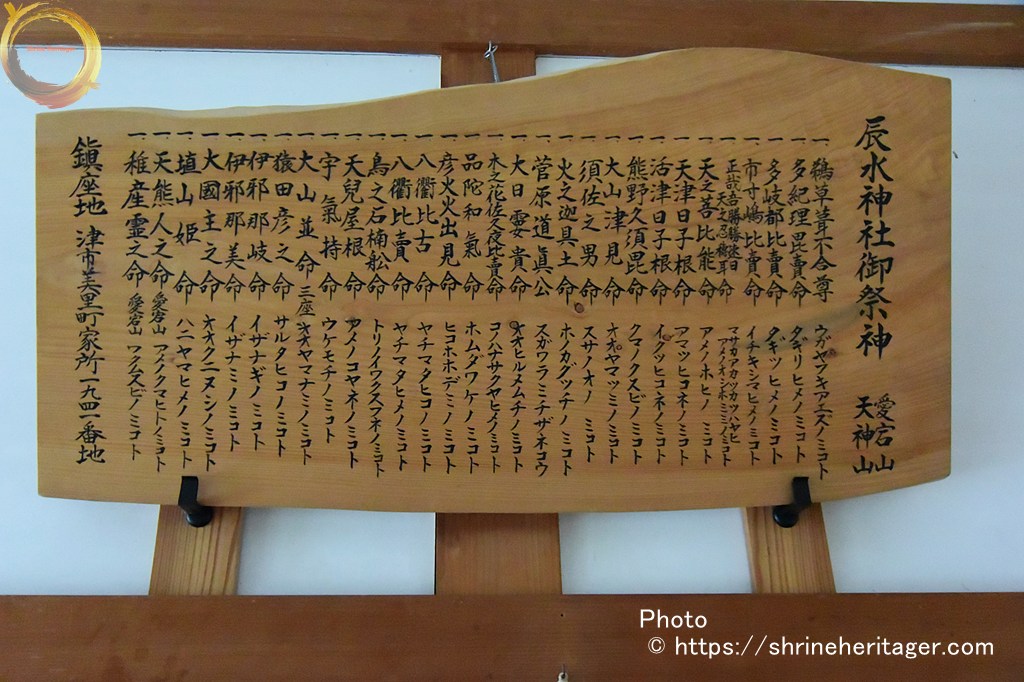 辰水神社御祭神 愛宕山 天神山
一 鵜草葺不合尊 ウガヤフキアエズノミコト
一 多紀理毘賣命 タギリヒメノミコト
一 多岐都比賣命 タギツヒメノミコト
一 市寸嶋比賣命 イチキシマヒメノミコト
一 正哉吾勝勝速日天之忍穂耳命 マサカアカツカツハヤヒアメノオシホミミノミコト
一 天之菩比能命 アメノホヒノミコト
一 天津日子根命 アマツヒコネノミコト
一 活津日子根命 イクツヒコネノミコト
一 熊野久須毘命 クマノクスビノミコト
一 大山津見命 オオヤマツミノミコト
一 須佐之男命 スサノオノミコト
一 火之迦具土命 ホノカグツチノミコト
一 菅原道真公 スガワラミチザネコウ
一 大日孁貴命 オオヒルメムチノミコト
一 木之花佐久夜比賣命 コノハナサクヤヒメノミコト
一 品陀和氣命 ホムダワケノミコト
一 彦火火出見命 ヒコホホデミノミコト
一 八衢比古命 ヤチマタヒコノミコト
一 八衢比賣命 ヤチマタヒメノミコト
一 鳥之石楠舩命 トリノイワクスフネノミコト
一 天兒屋根命 アメノコヤネノミコト
一 宇氣持命 ウケモチノミコト
一 大山並命 三座 オオヤマナミノミコト
一 猿田彦之命 サルタヒコノミコト
一 伊邪那岐命 イザナギノミコト
一 伊邪那美命 イザナミノミコト
一 大國主之命 オオクニヌシノミコト
一 埴山姫命 ハニヤマヒメノミコト
一 天熊人之命 愛宕山 アメノクマヒトノミコト
一 稚産霊之命 愛宕山 ワクムスビノミコト
鎮座地 津市美里町家所一九四一番地
Photo
© https://shrineheritager.com